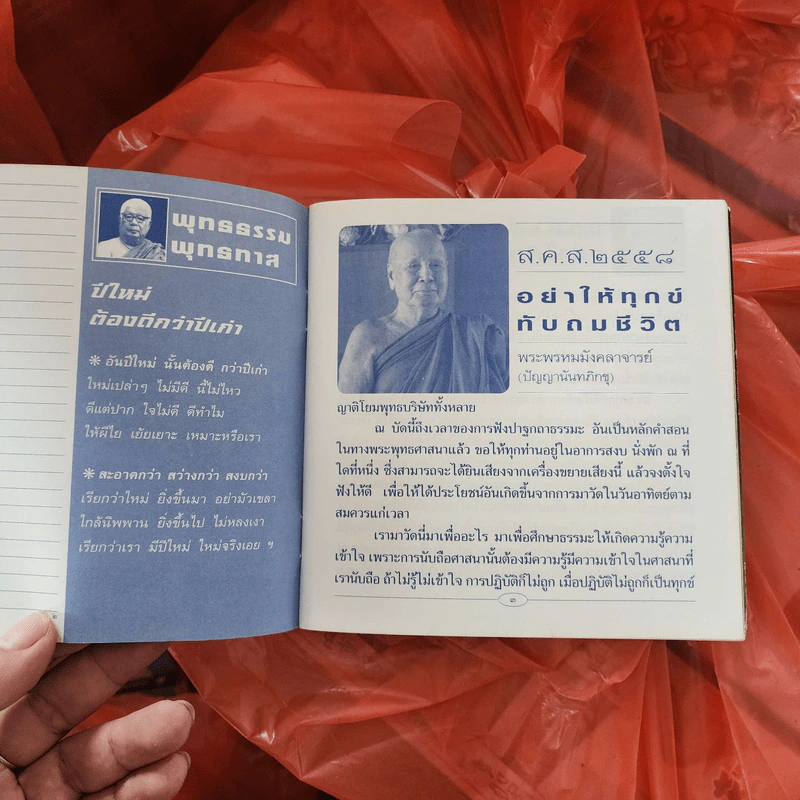 พุทธธรรม
พุทธทาส
ปีใหม่
ต้องดีกว่าปีเก่า
* อันปีใหม่ นั้นต้องดี กว่าปีเก่า
ใหม่เปล่าๆ ไม่มีดี นี้ไม่ไหว
ดีแต่ปาก ใจไม่ดี ดีทำไม
ให้ผีไย เย้ยเยาะ เหมาะหรือเรา
* สะอาดกว่า สว่างกว่า สงบกว่า
เรียกว่าใหม่ ยิ่งขึ้นมา อย่ามัวเขลา
ใกล้นิพพาน ยิ่งขึ้นไป ไม่หลงเงา
เรียกว่าเรา มีปีใหม่ ใหม่จริงเอย ฯ
ส.ค.ส.๒๕๕๘
อย่าให้ทุกข์
ทับถมชีวิต
พระพรหมมังคลาจารย์
(ปัญญานันทภิกขุ)
ญาติโยมพุทธบริษัททั้งหลาย
ณ บัดนี้ถึงเวลาของการฟังปาฐกถาธรรมะ อันเป็นหลักคำสอน
ในทางพระพุทธศาสนาแล้ว ขอให้ทุกท่านอยู่ในอาการสงบ นั่งพัก ณ ที่
ใดที่หนึ่ง ซึ่งสามารถจะได้ยินเสียงจากเครื่องขยายเสียงนี้ แล้วจงตั้งใจ
ฟังให้ดี เพื่อให้ได้ประโยชน์อันเกิดขึ้นจากการมาวัดในวันอาทิตย์ตาม
สมควรแก่เวลา
เรามาวัดนี่มาเพื่ออะไร มาเพื่อศึกษาธรรมะให้เกิดความรู้ความ
เข้าใจ เพราะการนับถือศาสนานั้นต้องมีความรู้มีความเข้าใจในศาสนาที่
เรานับถือ ถ้าไม่รู้ไม่เข้าใจ การปฏิบัติก็ไม่ถูก เมื่อปฏิบัติไม่ถูกก็เป็นทุกข์
๓